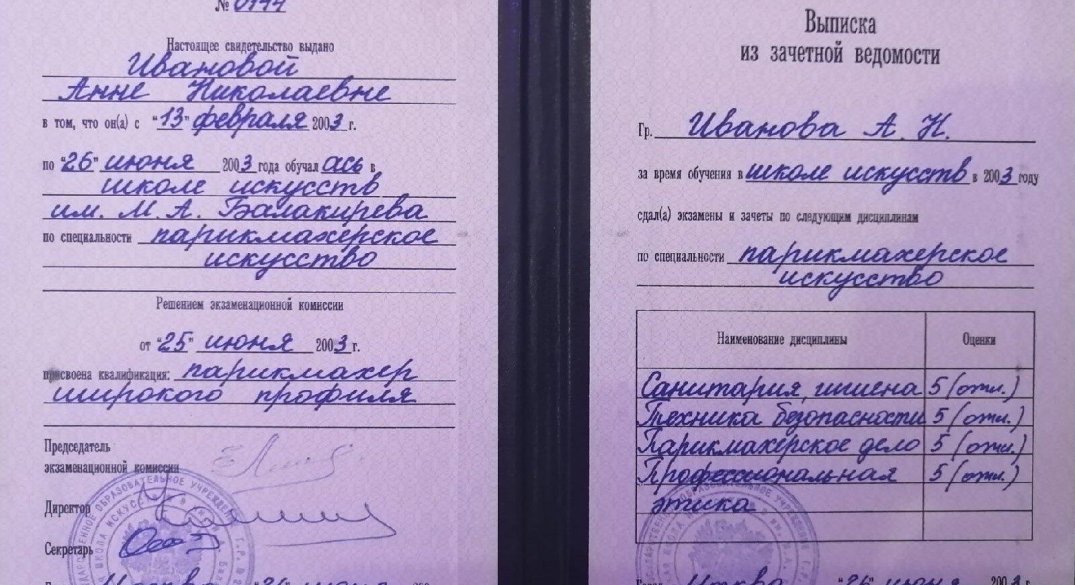 № 0144
Настоящее свидетельство выдано
Ивановой
Анне Николаевне
в том, что он(а) с "13" февраля 2003 г.
по "26" июня 2003 года обучалась в
школе искусств
им. М. А. Балакирева
по специальности парикмахерское
искусство
Решением экзаменационной комиссии
от "25" июня 2003 г.
присвоена квалификация: парикмахер
широкого профиля
Председатель
экзаменационной комиссии
Директор
Секретарь
Москва "26" июня 200
Выписка
из зачетной ведомости
Гр. Иванова А. Н.
за время обучения в школе искусств в 2003 году
сдал(а) экзамены и зачеты по следующим дисциплинам
по специальности парикмахерское
искусство
Наименование дисциплины Оценки
Санитария, гигиена 5 (отл.)
Техника безопасности 5 (отл.)
Парикмахерское дело 5 (отл.)
Профессиональная 5 (отл.)
этика
Город Москва "26" июня 2003 г.